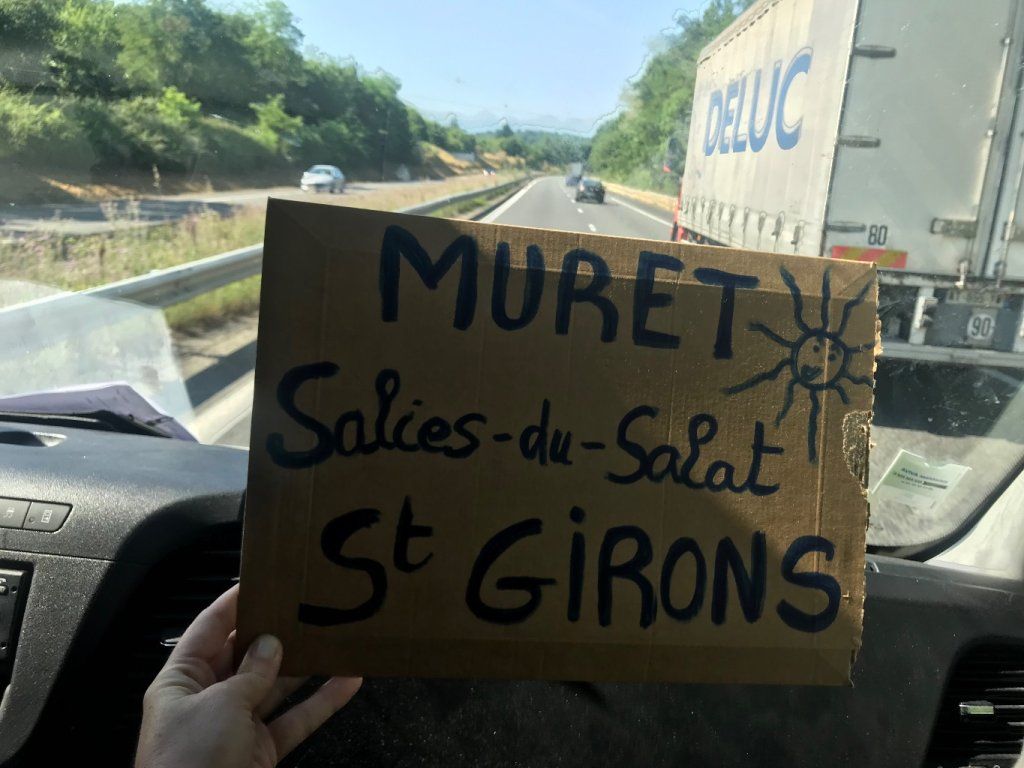 DELUC
80
90
MURET
Salies-du-Salat
St GiRONS